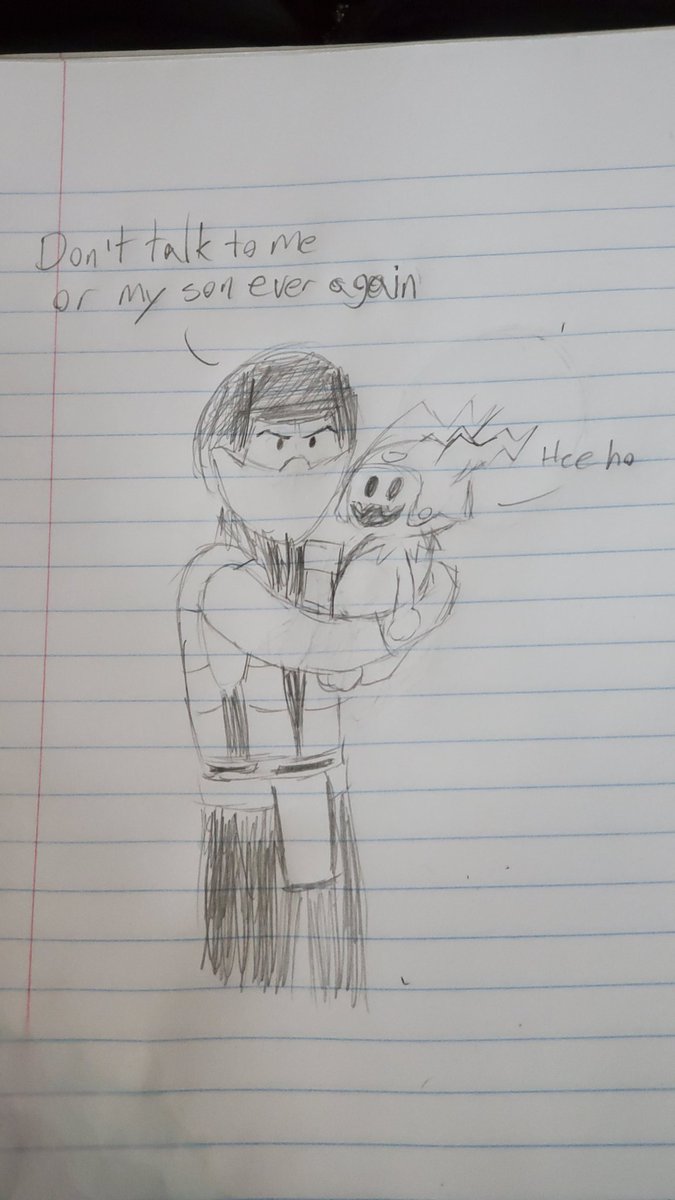 Don't talk to me
or my son ever again
Hee ho